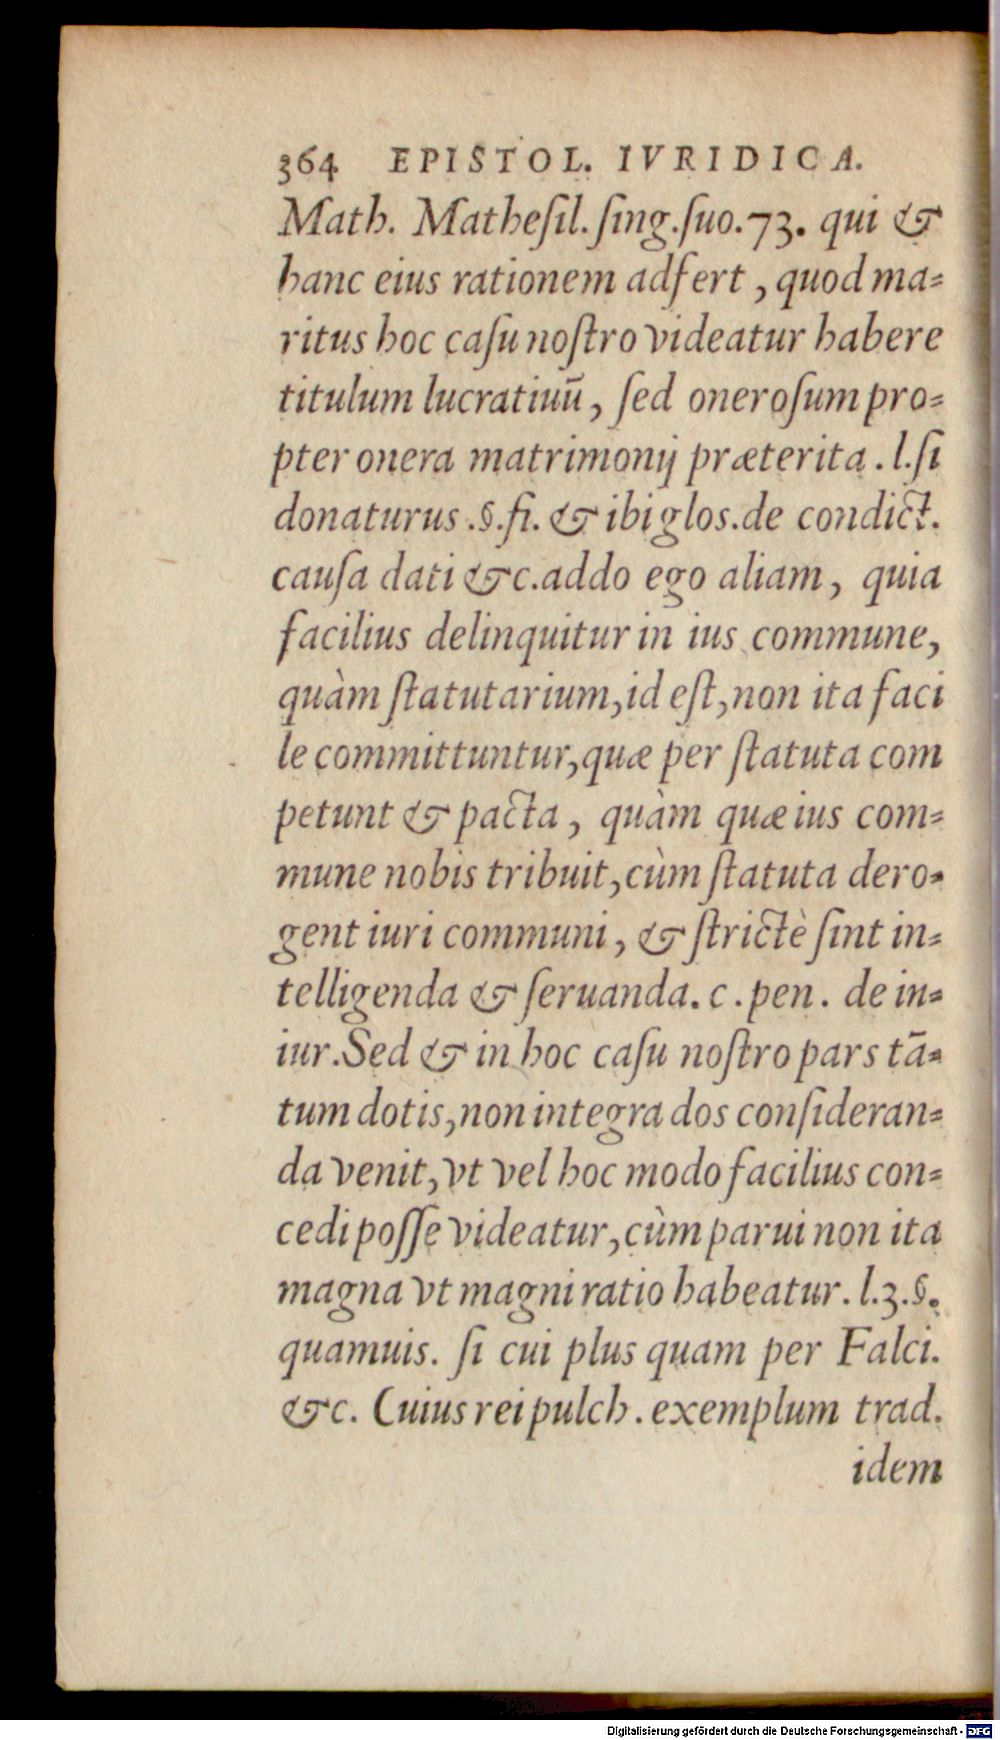 364 EPISTOL. IVRIDICA.
Math. Mathesil. sing. suo. 73. qui &
hanc eius rationem adfert, quod ma-
ritus hoc casu nostro videatur habere
titulum lucratiuū, sed onerosum pro-
pter onera matrimonij præterita. l. si
donaturus. §. fi. & ibi glos. de condict.
causa dati &c. addo ego aliam, quia
facilius delinquitur in ius commune,
quàm statutarium, id est, non ita faci
le committuntur, quæ per statuta com
petunt & pacta, quàm quæ ius com-
mune nobis tribuit, cùm statuta dero-
gent iuri communi, & strictè sint in-
telligenda & seruanda. c. pen. de in-
iur. Sed & in hoc casu nostro pars tā-
tum dotis, non integra dos consideran-
da venit, vt vel hoc modo facilius con-
cedi posse videatur, cùm parui non ita
magna vt magni ratio habeatur. l. 3. §.
quamuis. si cui plus quam per Falci.
&c. Cuius rei pulch. exemplum trad.
idem
Digitalisierung gefördert durch die Deutsche Forschungsgemeinschaft - DFG